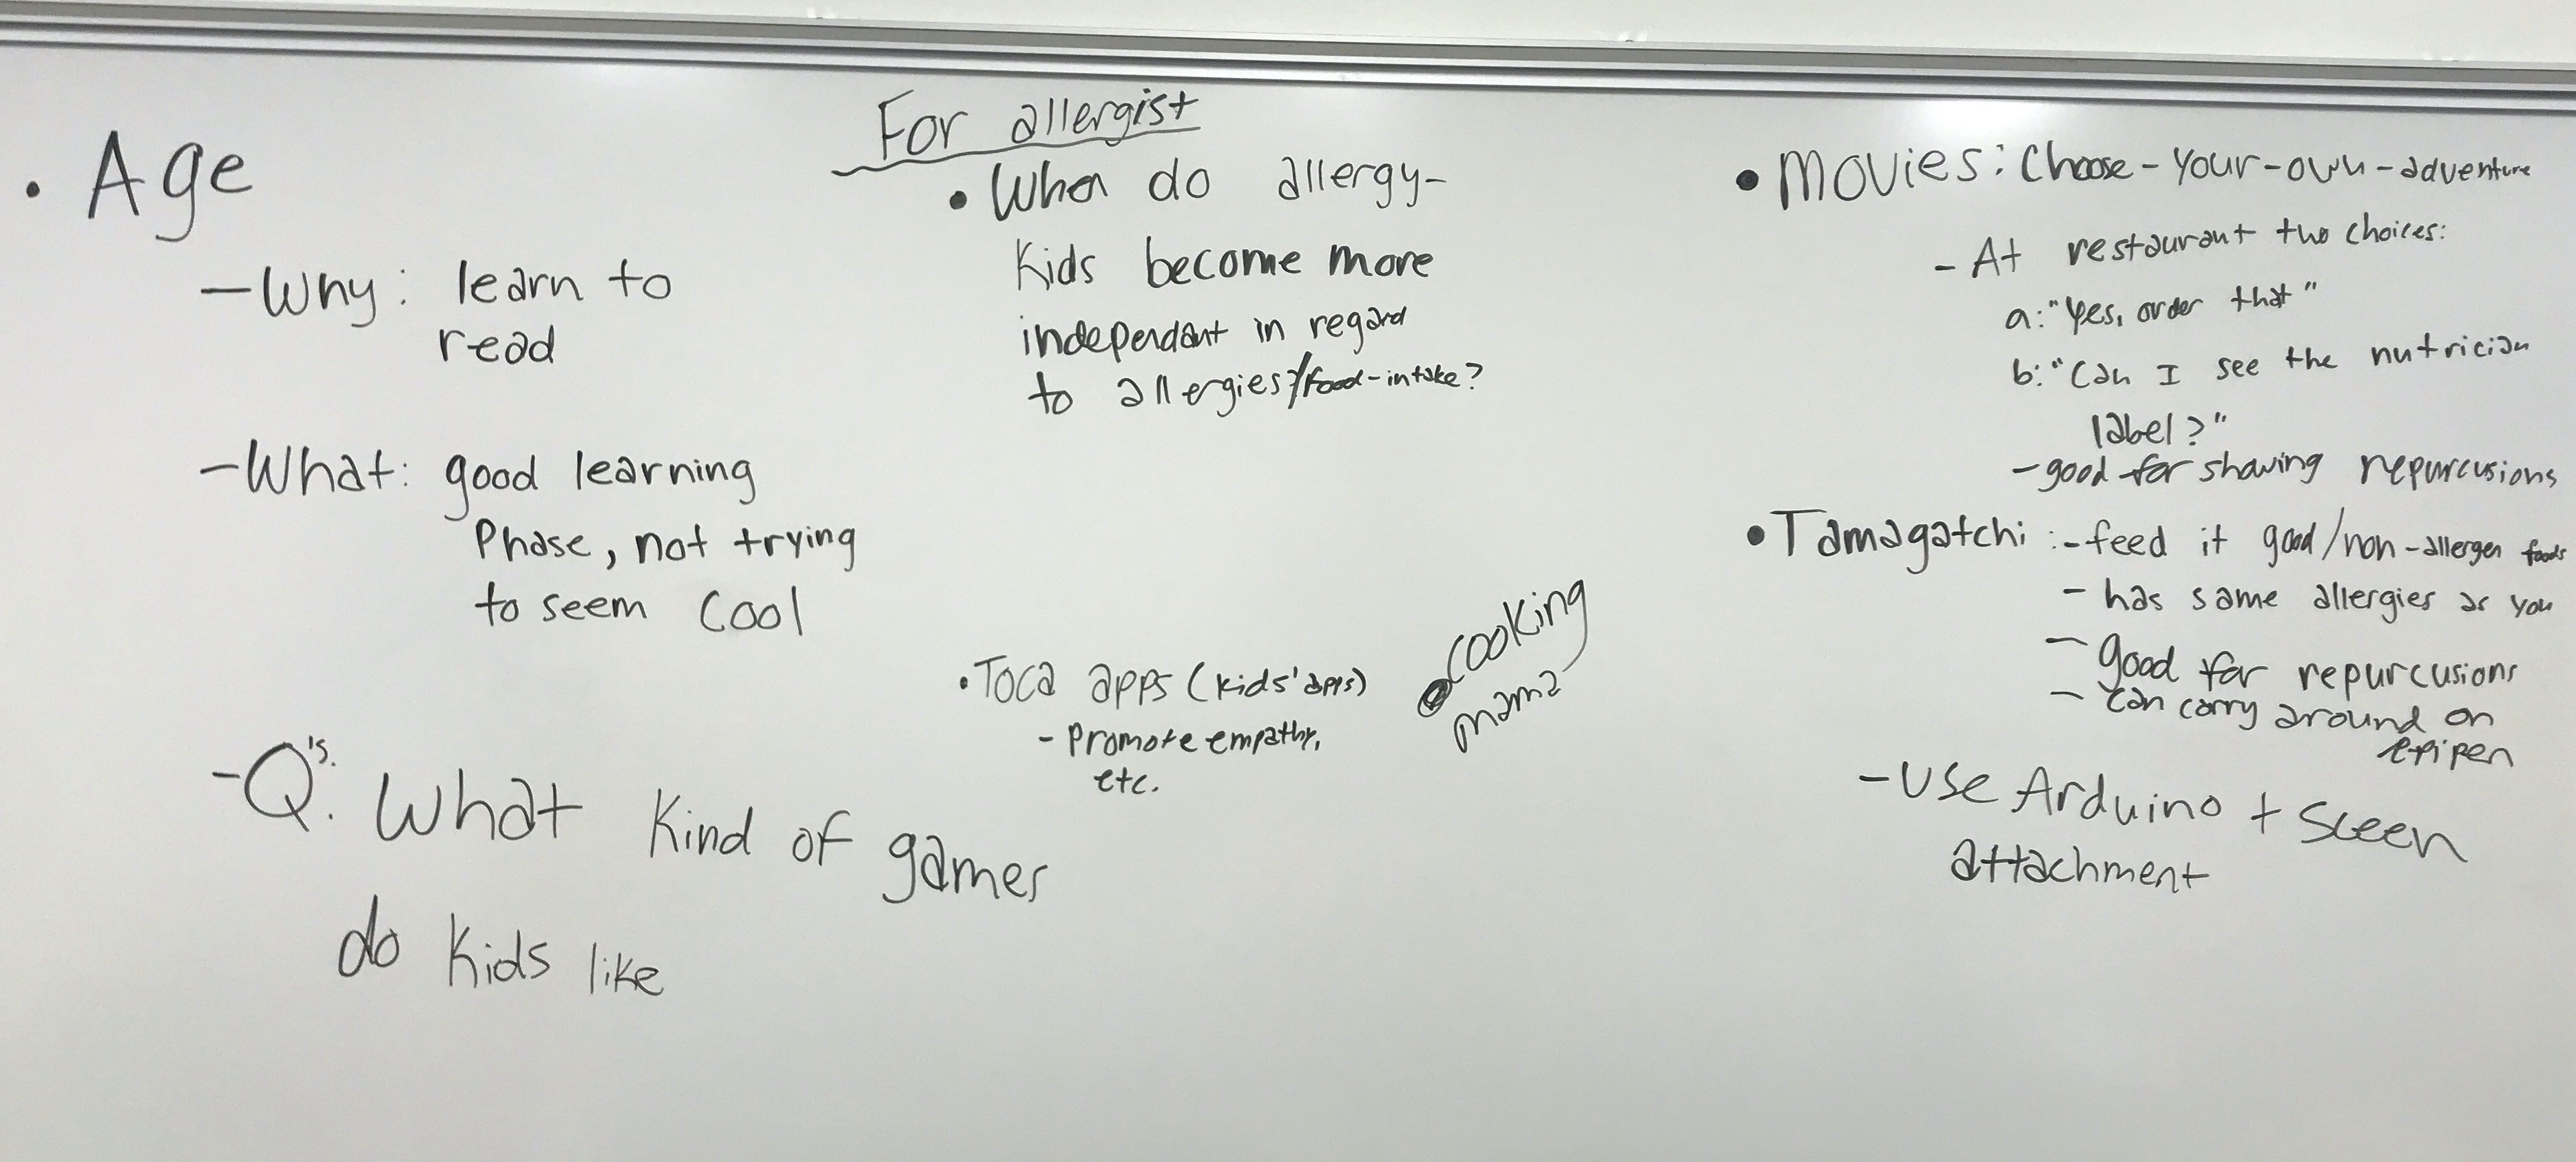 • Age
- Why: learn to
read
- What: good learning
Phase, not trying
to seem cool
- Q's: What kind of games
do kids like
For allergist
• When do allergy-
kids become more
independant in regard
to allergies?/food-intake?
• Toca apps (kids' apps)
- Promote empathy,
etc.
• cooking
mama
• Movies: Choose-your-own-adventure
- At restaurant two choices:
a: "Yes, order that"
b: "Can I see the nutrician
label?"
- good for showing repurcusions
• Tamagatchi: - feed it good/non-allergen foods
- has same allergies as you
- good for repurcusions
- can carry around on
epipen
- Use Arduino + Sceen
attachment